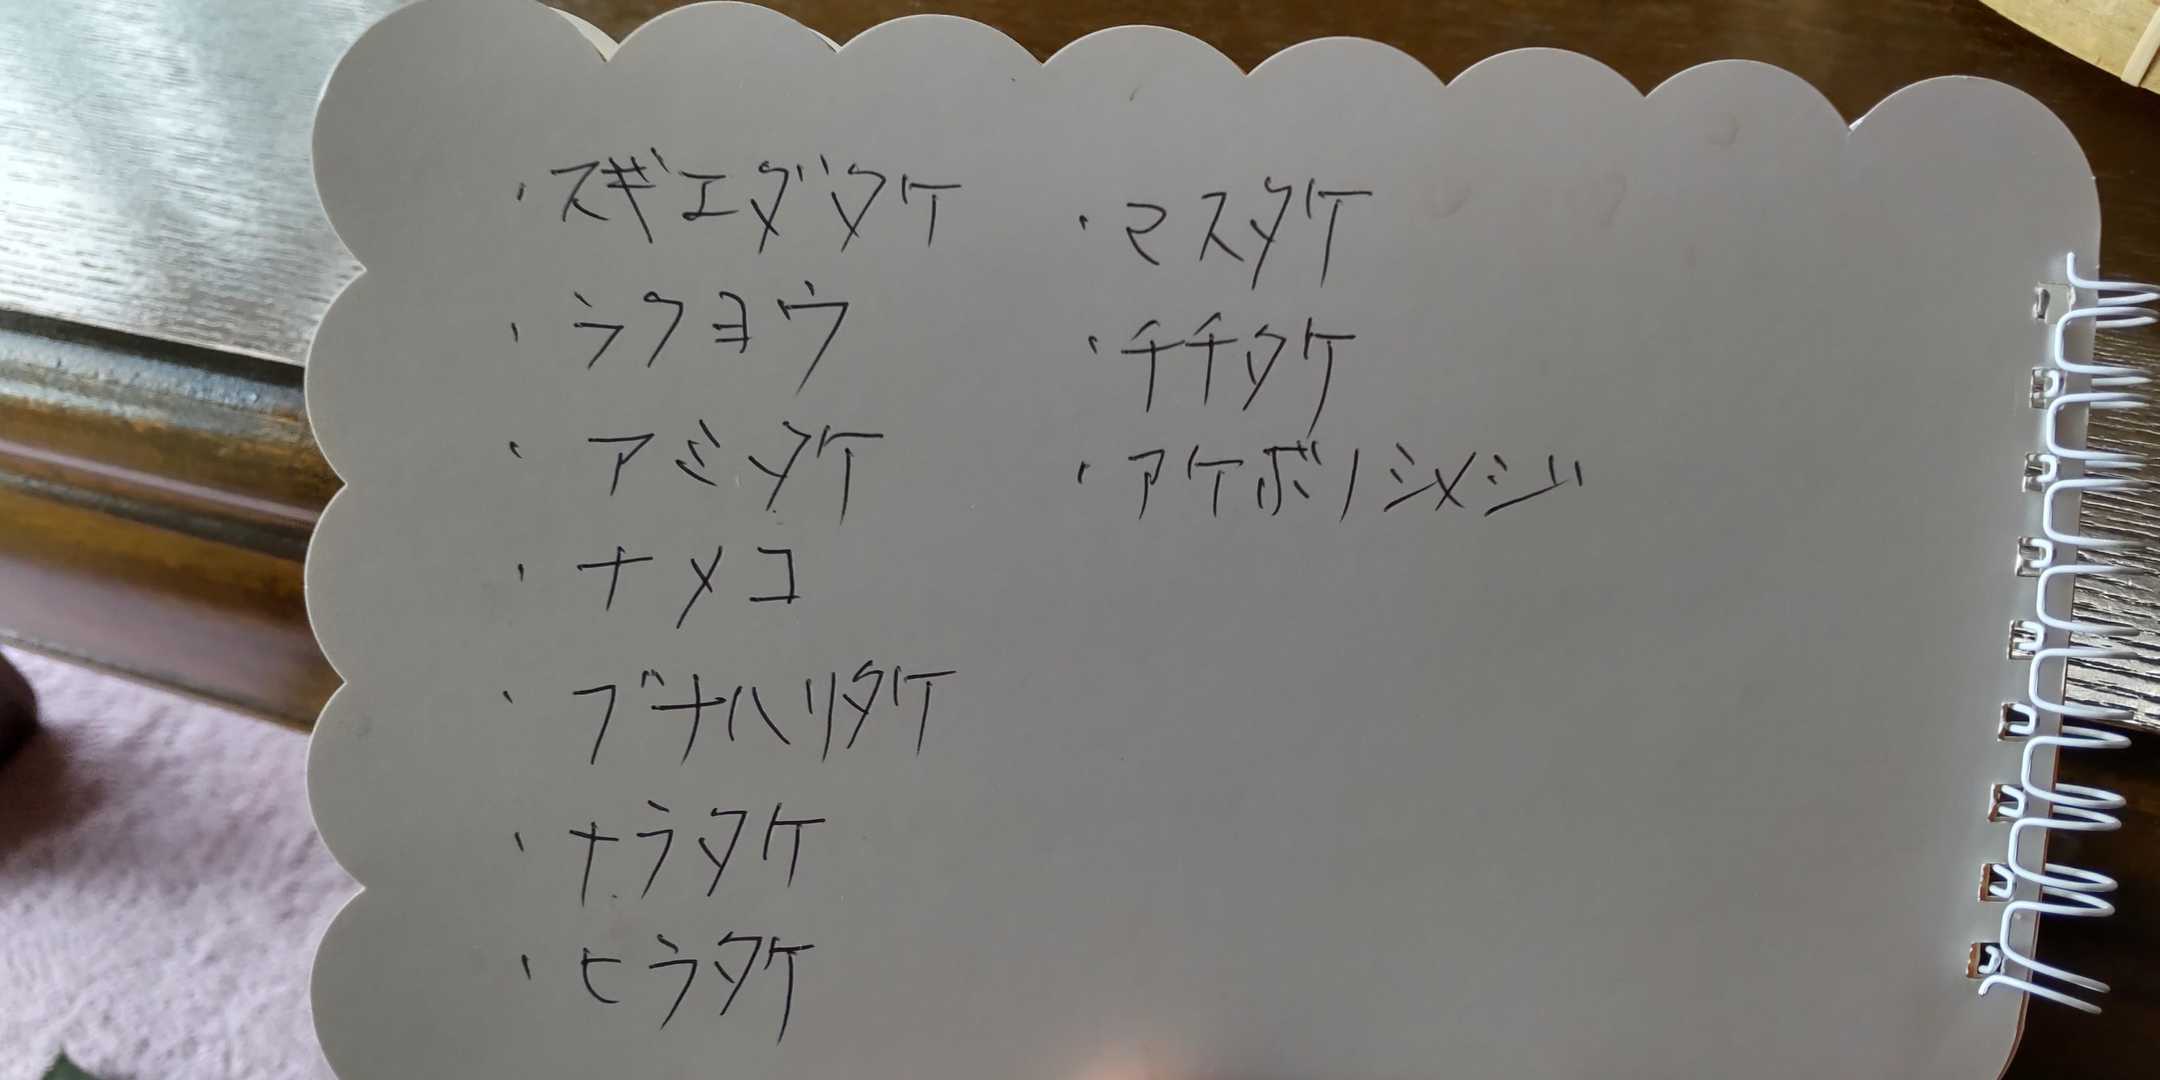 ・スギエダタケ
・ラクヨウ
・アミタケ
・ナメコ
・ブナハリタケ
・ナラタケ
・ヒラタケ
・マスタケ
・チチタケ
・アケボノシメジ